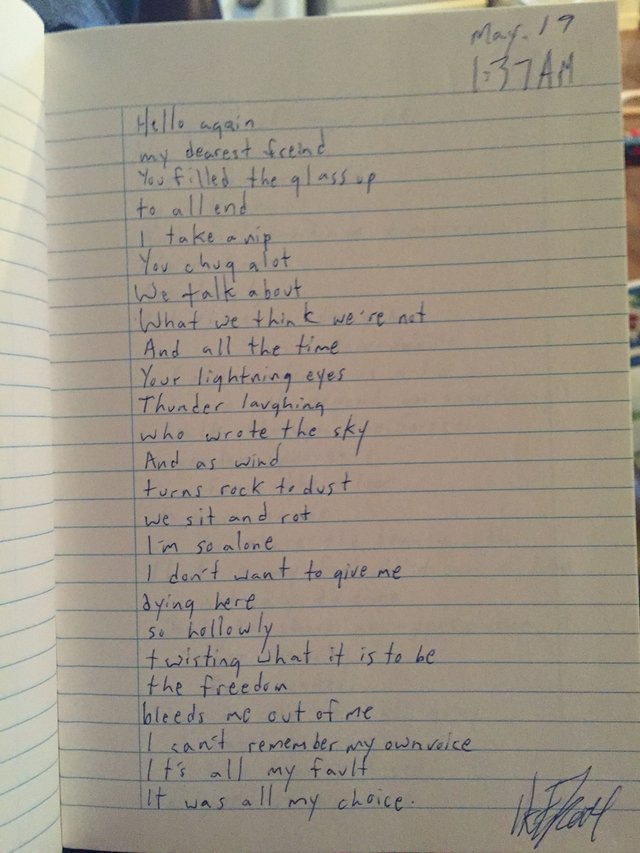 May. 19
1:37AM
Hello again
my dearest freind
You filled the glass up
to all end
I take a nip
You chug alot
We talk about
What we think we're not
And all the time
Your lightning eyes
Thunder laughing
who wrote the sky
And as wind
turns rock to dust
we sit and rot
I'm so alone
I don't want to give me
dying here
so hollowly
twisting what it is to be
the freedom
bleeds me out of me
I can't remember my own voice
It's all my fault
It was all my choice.